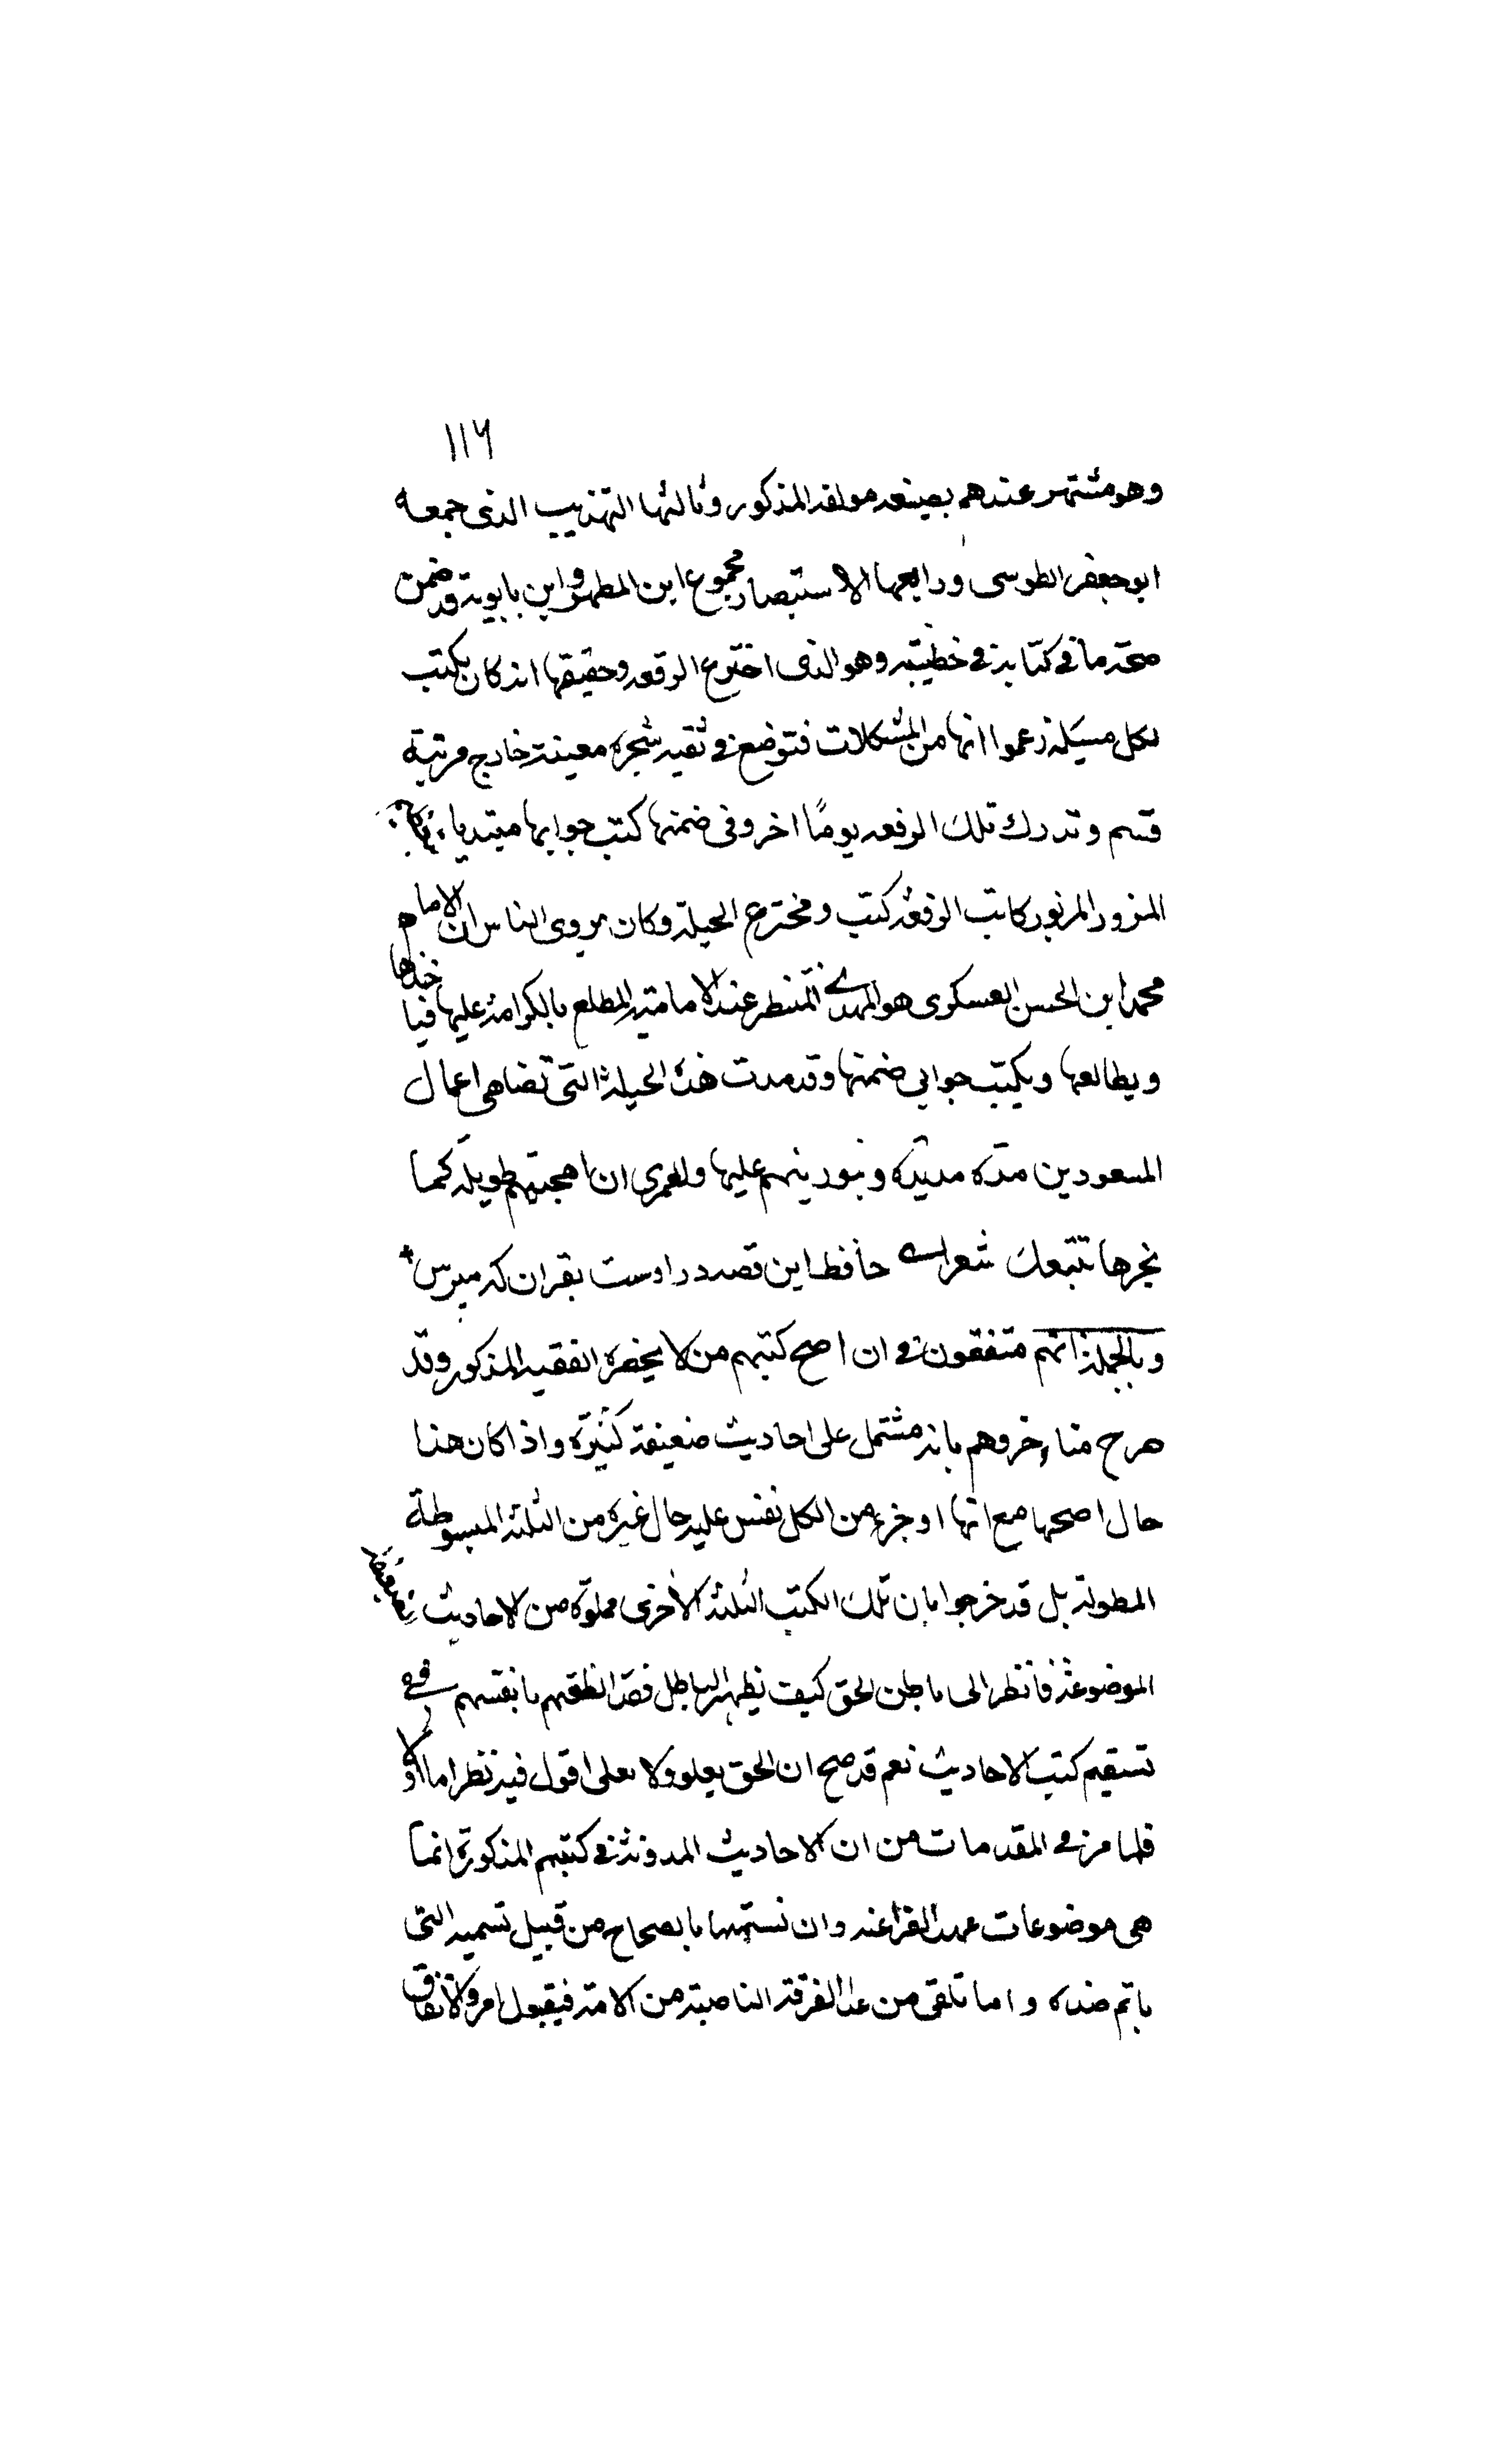 ١١٦
وهو مشتهر عندهم بصنعه مولفه المذكور وثالثها التهذيب الذى جمعه
ابو جعفر الطوسى ورابعها الاستبصار مجموع ابن المطهر وابن بابويه قد ضمن
صحة ما فى كتابه فى خطبته وهو الذى اخترع الرقعه وحقيقتها انه كان يكتب
لكل مسئلة زعموا انها من المشكلات فتوضع فى ثقبه شجرة معينة خارج مرتبة
قسم وتدرك تلك الرقعه يومًا اخر وفى ضمنها كتب جوابها
المزور المزبور كاتب الرقعه كتب ومخترع الحيلة وكان يروى الناس ان الامام
محمد ابن الحسن العسكرى هو المهدى المنتظر عند الامامية المطلع بالكرامة عليها فيأخذها
ويطالعها ويكتب جوابى ضمنها وقد مدت هذه الحيلة التى تضاهى اعمال
المسعودين مدة مديدة ونبور ينهم عليها ولعمرى ان اهجيتهم طويلة كما
نجرها تتبعك شعر اسے حافظ اين قصه دراوست بقران كه مپرس
وبالجملة انهم متفقون فى ان اصح كتبهم من لا يحضره الفقيه المذكور وقد
صرح متاخروهم بانه مشتمل على احاديث ضعيفة كثيرة واذا كان هذا
حال اصحها مع انها اوجز من الكل نفس عليه حال غيره من الثلثة المبسوطة
المطولة بل قد خرجوا بان تلك الكتب الثلثة الأخرى مملوة من الاحاديث
الموضوعة فانظر الى باطن الحق كيف يظهر الباطل فقد انطقهم بانفسهم فى
تسقيم كتب الاحاديث نعم قد صح ان الحق يعلو ولا يعلى اقول فيه نظر اما اولا
فلما مر فى المقدمات من ان الاحاديث المدونة فى كتبهم المذكورة انما
هى موضوعات عهد الفراعنه وان نسبتها بالصحاح من قبيل تسميه الشى
باسم ضده واما تلقى من عدا الفرقة الناصبة من الامة فيقبول امر والاتفاق